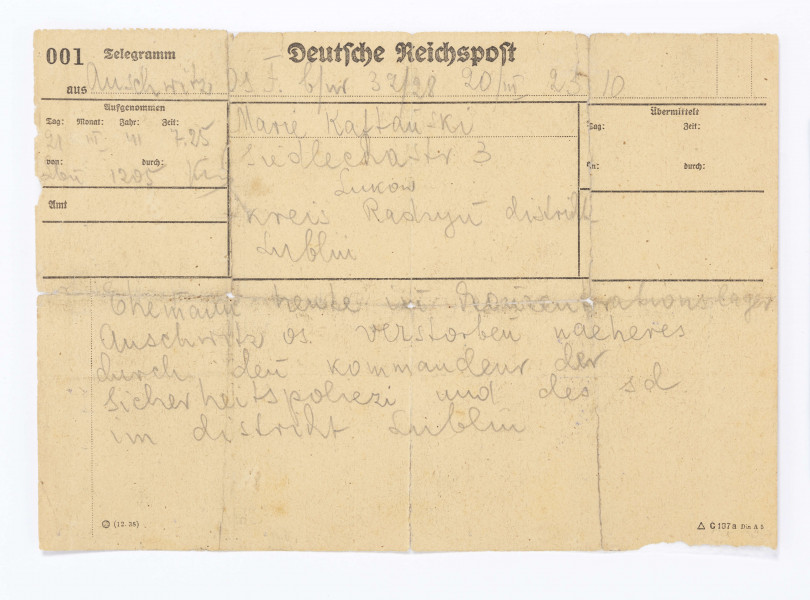 001 Telegramm Deutsche Reichspost
aus Auschwitz Os F. b/nr 32/28 20/III 25 10
Aufgenommen
Tag: Monat: Jahr: Zeit:
21 III 41 7.25
von: durch:
1205
Amt
Marie Kaftański
Siedlecka str 3
Lukow
kreis Radzyń distrikt
Lublin
Übermittelt
Tag: Zeit:
an: durch:
Ehemann heute im Konzentrationslager
Auschwitz os. verstorben naeheres
durch den kommandeur der
sicherheitspolizei und des sd
im distrikt Lublin
(12.35)
C 187a Din A 5